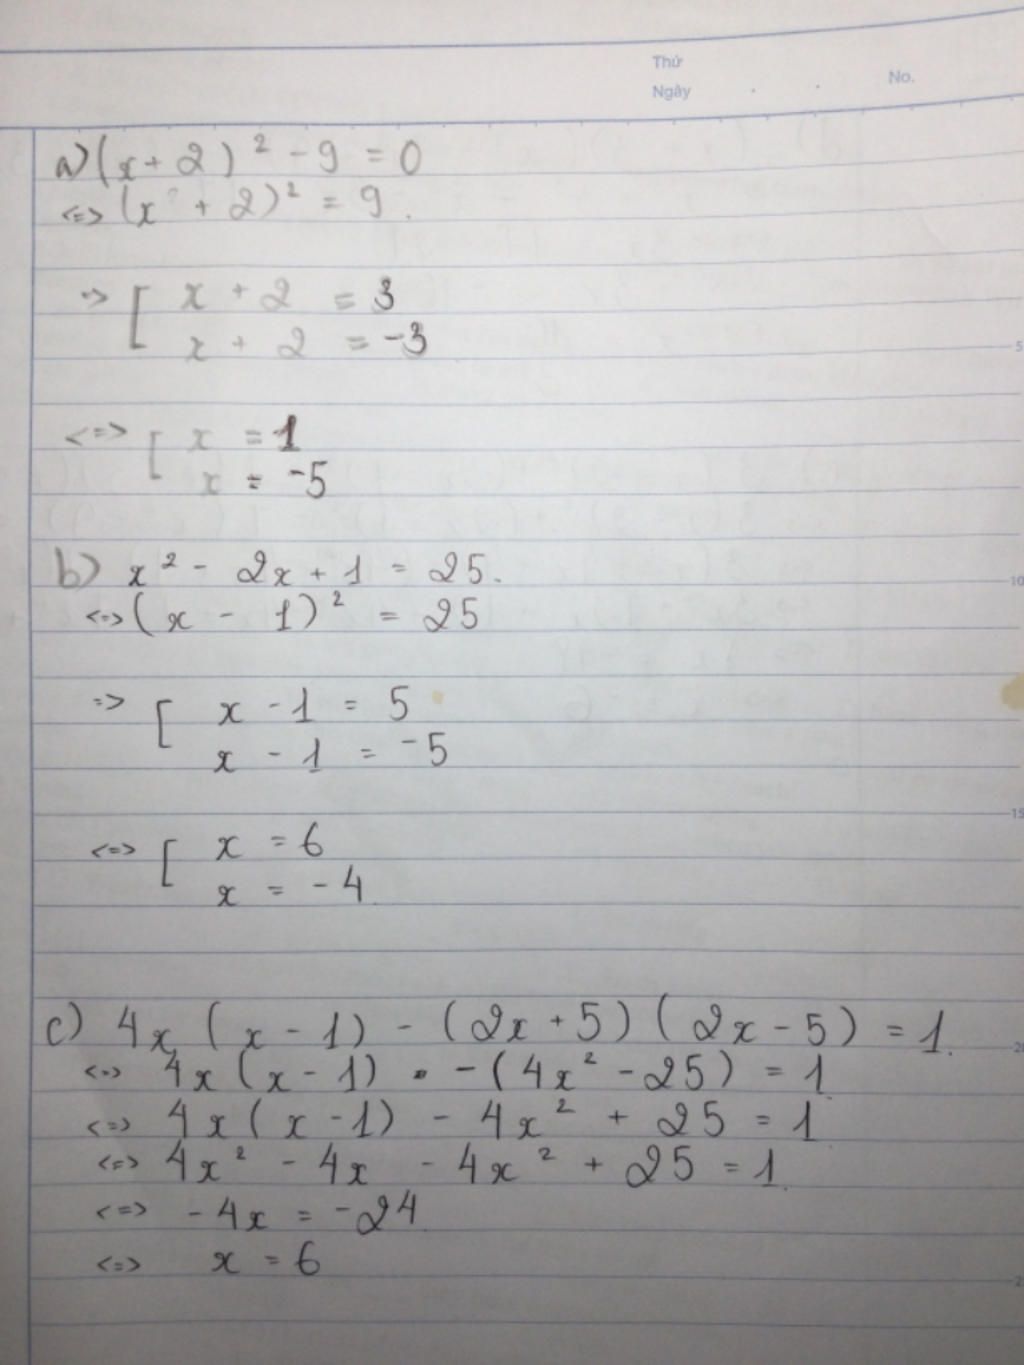 Thứ
Ngày . . No.
a) (x + 2)² - 9 = 0
<=> (x + 2)² = 9.
=> [ x + 2 = 3
x + 2 = -3
5
<=> [ x = 1
x = -5
b) x² - 2x + 1 = 25.
10
<=> (x - 1)² = 25
=> [ x - 1 = 5
x - 1 = -5
15
<=> [ x = 6
x = -4
c) 4x (x - 1) - (2x + 5) (2x - 5) = 1.
<=> 4x (x - 1) - (4x² - 25) = 1
<=> 4x (x - 1) - 4x² + 25 = 1
<=> 4x² - 4x - 4x² + 25 = 1.
<=> -4x = -24
<=> x = 6